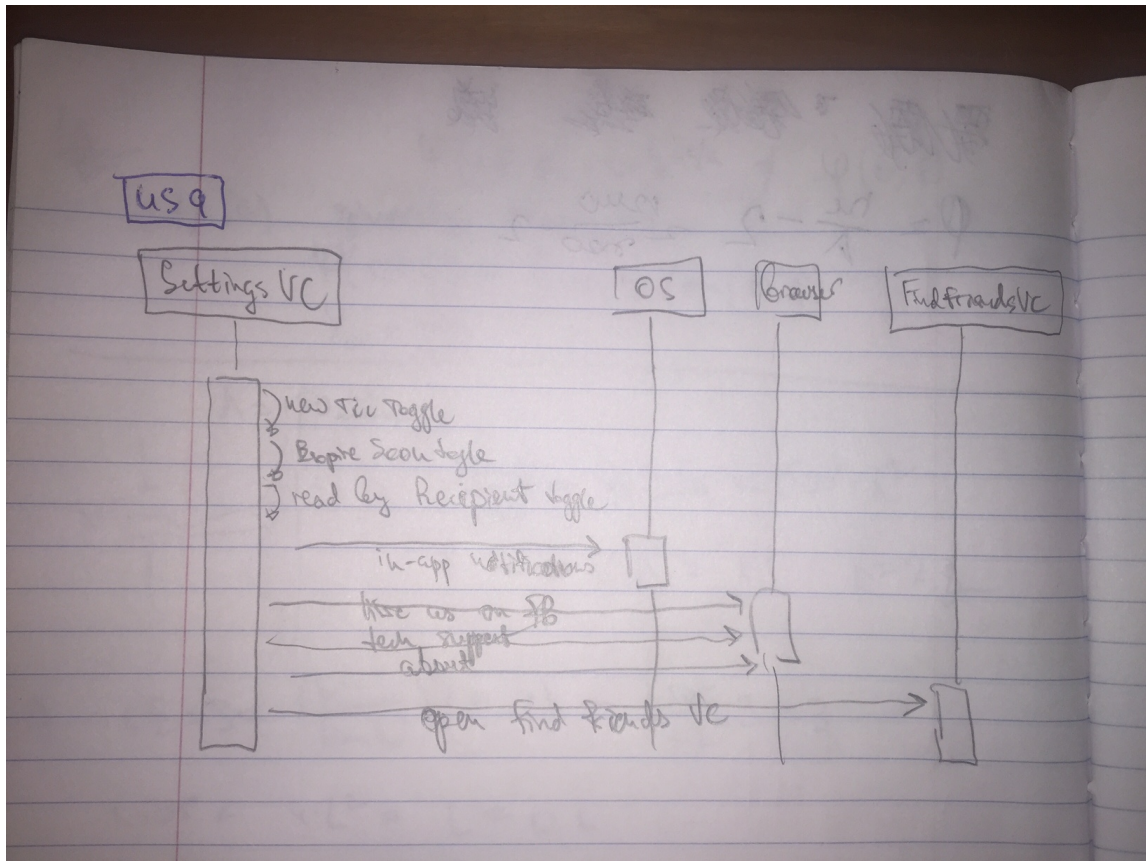 US 9
Settings VC
OS
Browser
Find friends VC
new Toggle
Expire Soon toggle
read by Recipient toggle
in-app notifications
like us on FB
tech support
about
open find friends VC